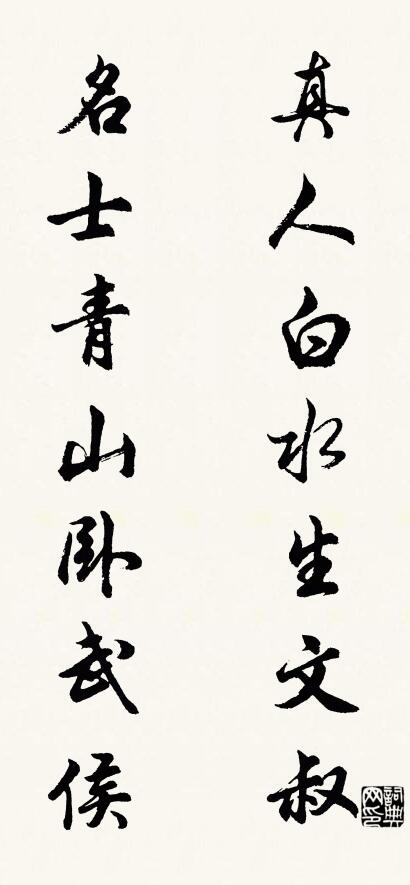 真人白水生文叔
名士青山卧武侯
詞典網